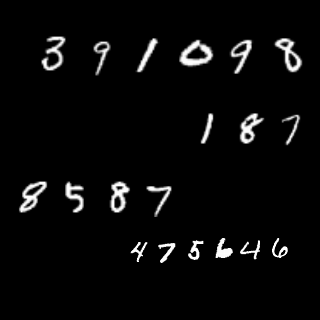 391098
187
8587
475646